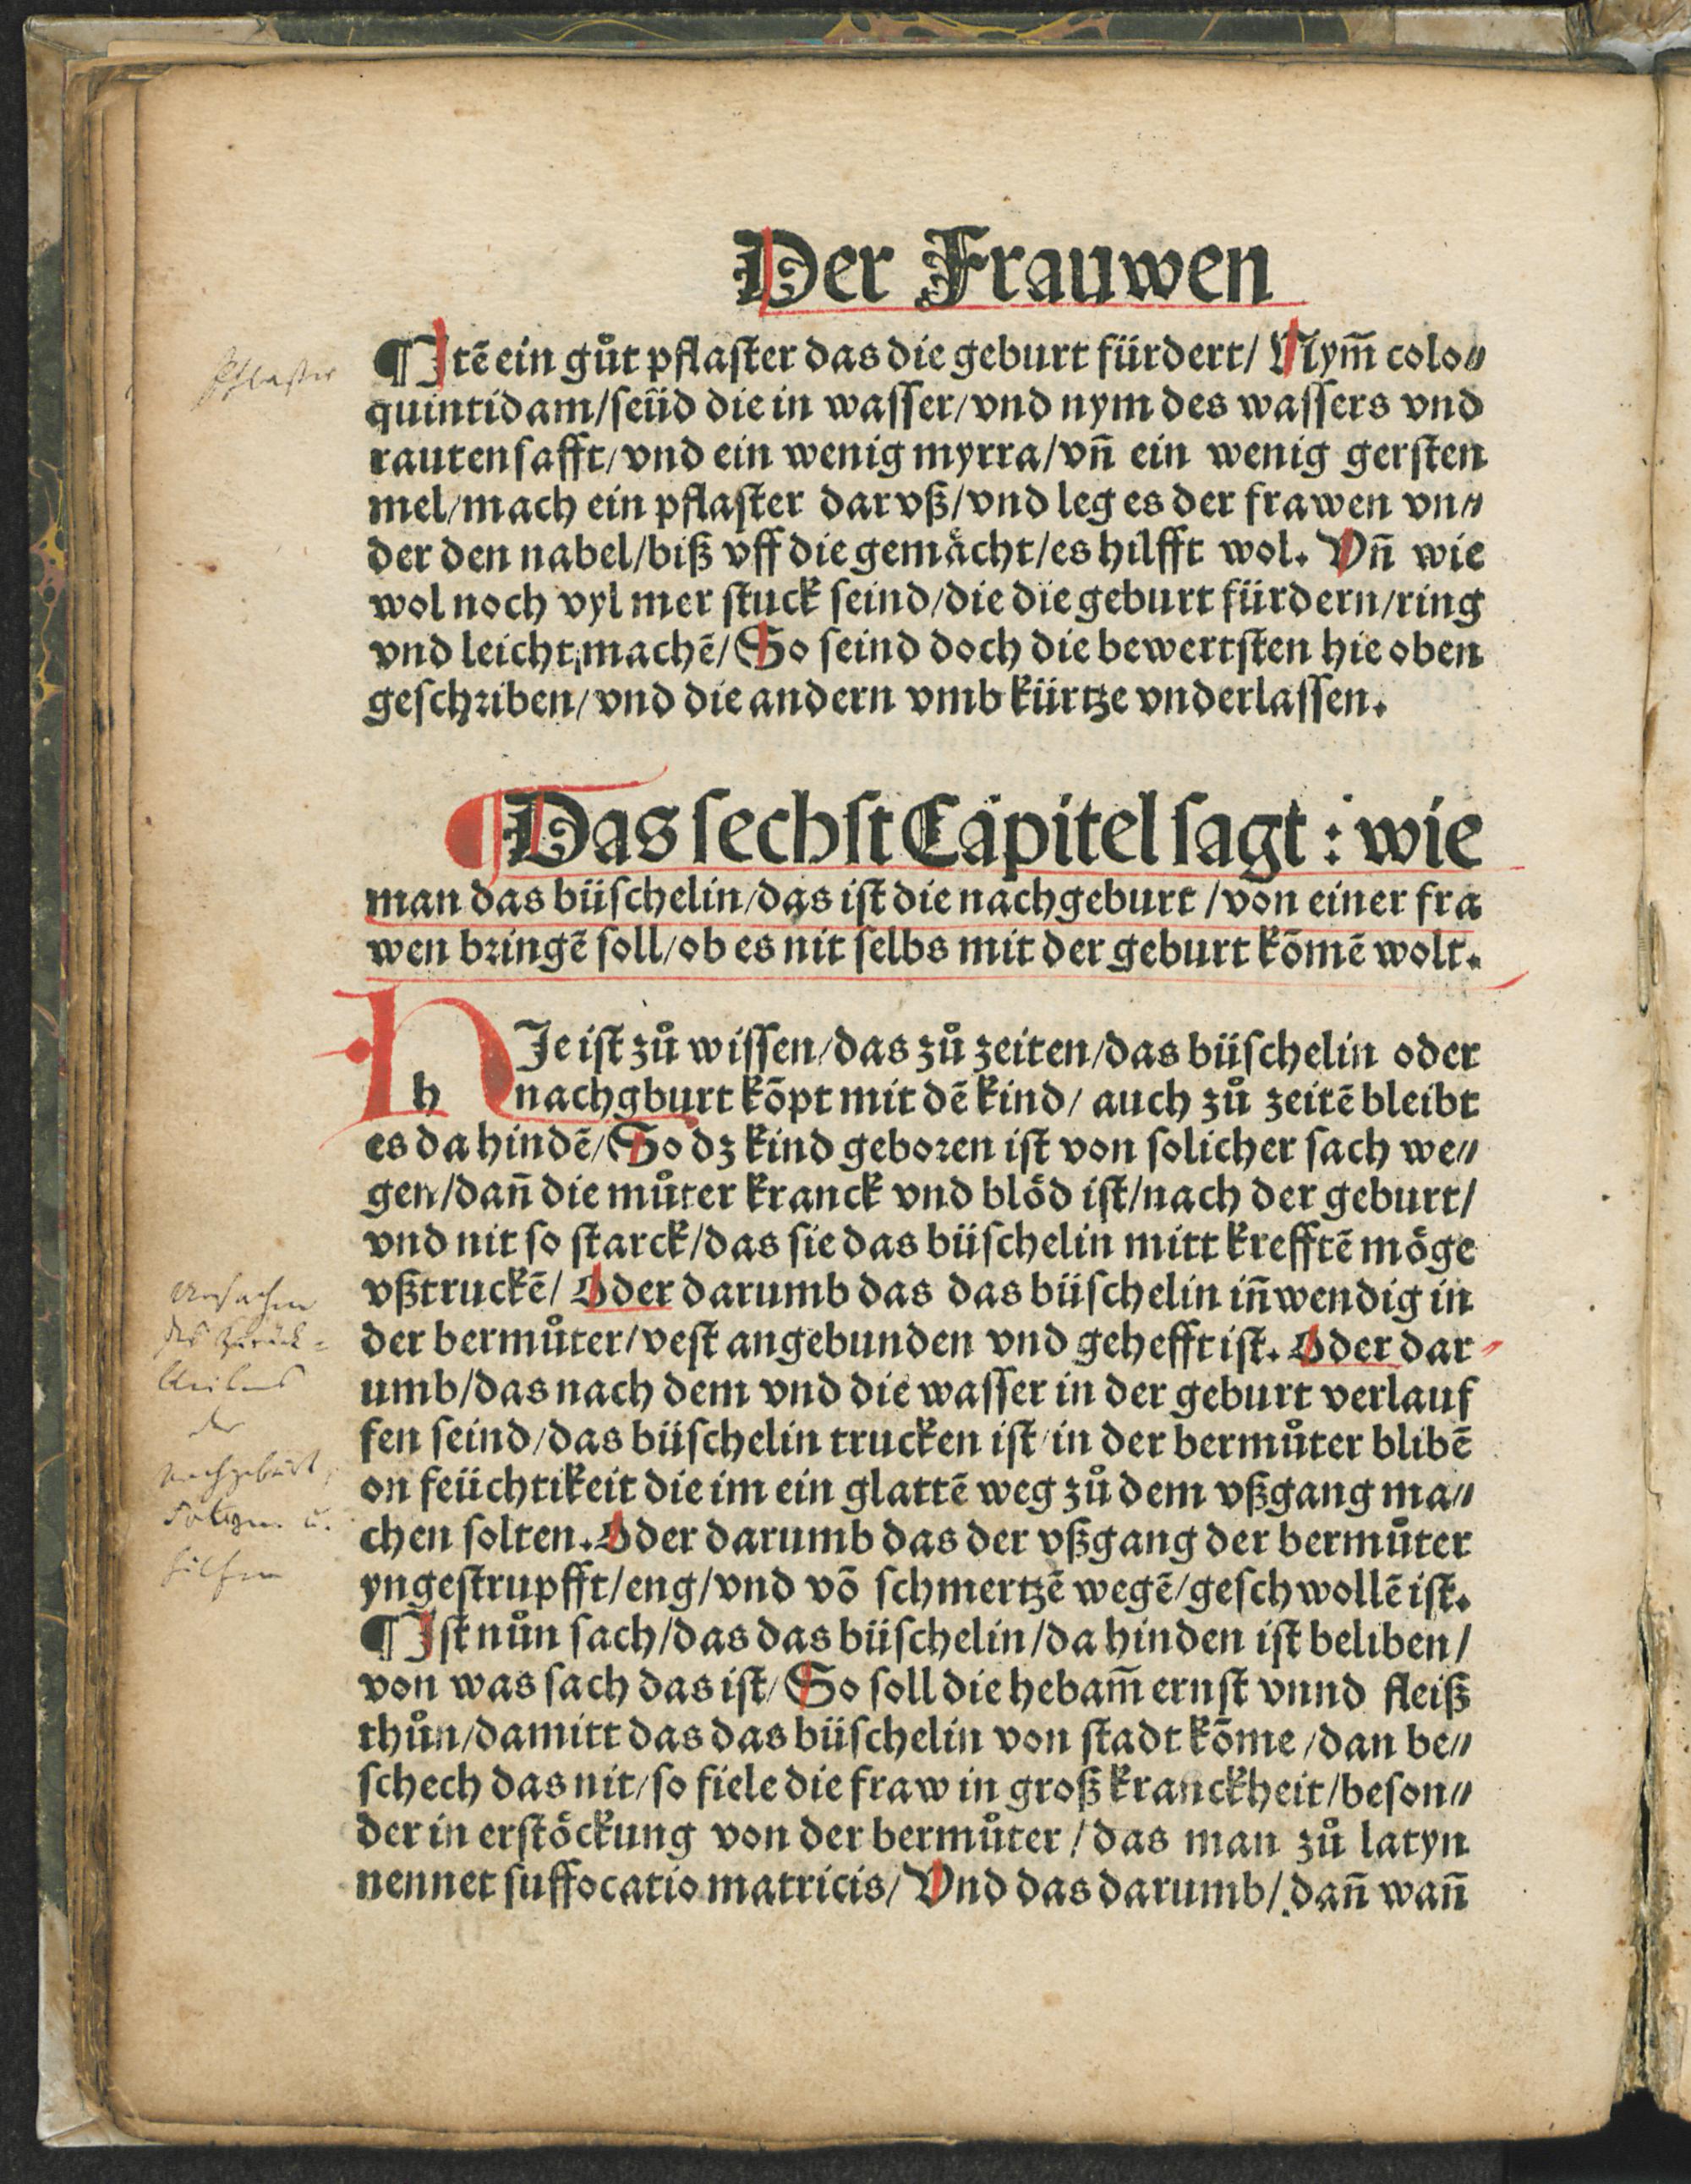 Der Frauwen
¶ Itē ein gůt pflaster das die geburt fürdert/ Nym̄ colo⸗
quintidam/seüd die in wasser/vnd nym des wassers vnd
rauten safft/vnd ein wenig myrra/vn̄ ein wenig gersten
mel/mach ein pflaster dar vß/vnd leg es der frawen vn⸗
der den nabel/biß vff die gemächt/es hilfft wol. Vn̄ wie
wol noch vyl mer stuck seind/die die geburt fürdern/ring
vnd leicht machē/So seind doch die bewertsten hie oben
geschriben/vnd die andern vmb kürtze vnderlassen.
¶ Das sechst Capitel sagt: wie
man das büschelin/das ist die nachgeburt/von einer fra
wen bringē soll/ob es nit selbs mit der geburt kōmē wolt.
HIe ist zů wissen/das zů zeiten/das büschelin oder
h nachgburt kōpt mit dē kind/ auch zů zeitē bleibt
es da hindē/So dz kind geboren ist von solicher sach we⸗
gen/dan̄ die můter kranck vnd blöd ist/nach der geburt/
vnd nit so starck/das sie das büschelin mitt krefftē möge
vßtruckē/ Oder darumb das das büschelin in̄wendig in
der bermůter/vest angebunden vnd gehefft ist. Oder dar
umb/das nach dem vnd die wasser in der geburt verlauf
fen seind/das büschelin trucken ist/in der bermůter blibē
on feüchtikeit die im ein glattē weg zů dem vßgang ma⸗
chen solten. Oder darumb das der vßgang der bermůter
yngestrupfft/eng/vnd vō schmertzē wegē/geschwollē ist.
¶ Ist nůn sach/das das büschelin/da hinden ist beliben/
von was sach das ist/So soll die hebam̄ ernst vnnd fleiß
thůn/damitt das das büschelin von stadt kōme/dan be⸗
schech das nit/so fiele die fraw in groß kranckheit/beson⸗
der in erstöckung von der bermůter/das man zů latyn
nennet suffocatio matricis/Vnd das darumb/dan̄ wan̄
Pflaster
Ursachen
des Zurück⸗
bleibens
der
Nachgeburt,
Folgen u.
Hilfen